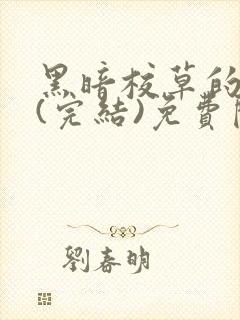 黑暗校草的
(完結)免費
劉春明